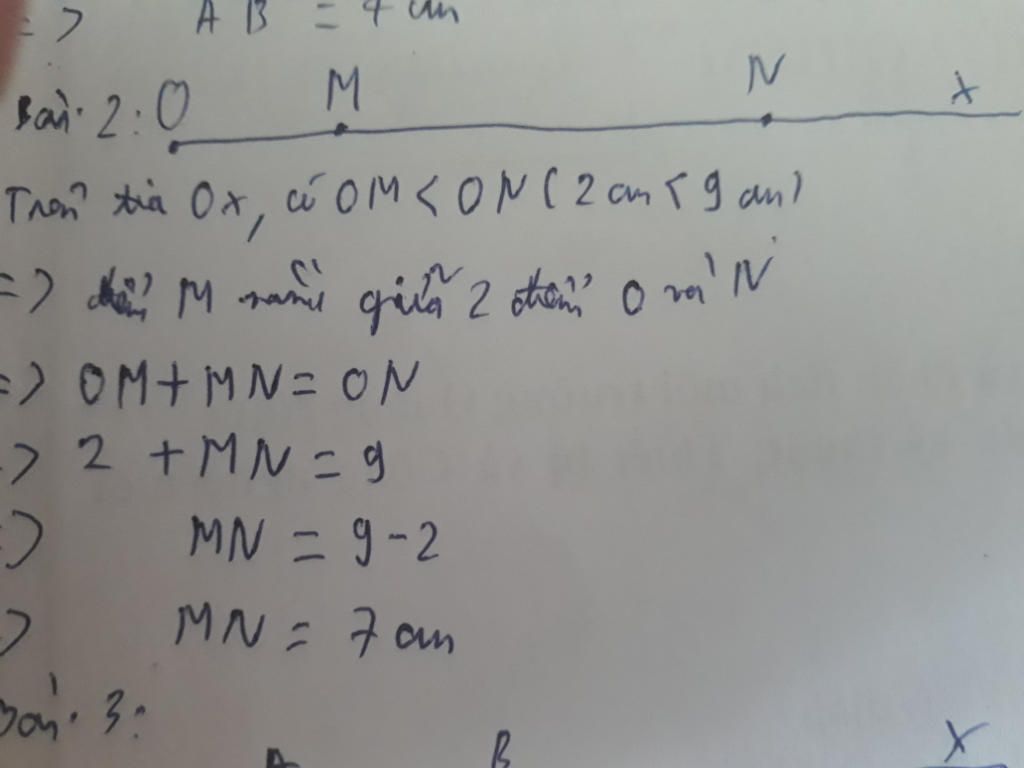 => AB = 7 cm
Bài 2: O M N x
Trên tia Ox, có OM < ON (2 cm < 9 cm)
=> điểm M nằm giữa 2 điểm O và N
=> OM + MN = ON
=> 2 + MN = 9
=> MN = 9 - 2
=> MN = 7 cm
Bài 3:
A B x